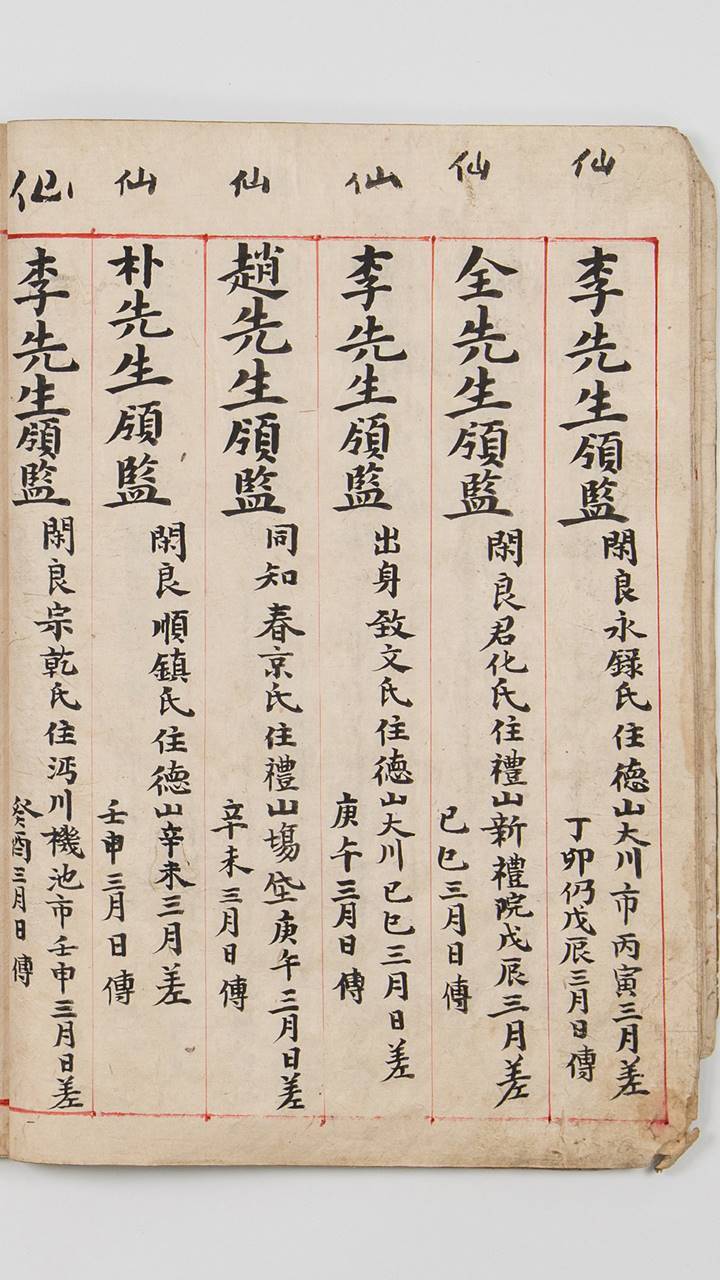 仙
李先生領監
閑良永錄氏住德山大川市丙寅三月差
丁卯仍戊辰三月日傳
仙
全先生領監
閑良君化氏住禮山新禮院戊辰三月差
己巳三月日傳
仙
李先生領監
出身致文氏住德山大川己巳三月日差
庚午三月日傳
仙
趙先生領監
同知春京氏住禮山場垈庚午三月日差
辛未三月日傳
仙
朴先生領監
閑良順鎮氏住德山辛未三月差
壬申三月日傳
仙
李先生領監
閑良宗乾氏住沔川機池市壬申三月日差
癸酉三月日傳